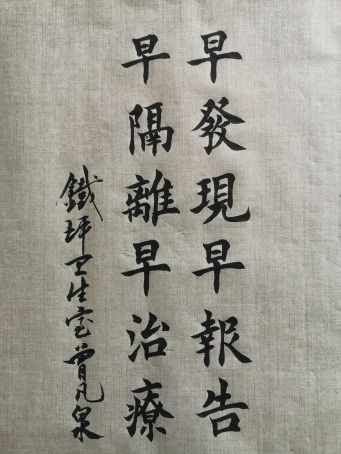 早發現早報告
早隔離早治療
鐵坪卫生室曾凡泉